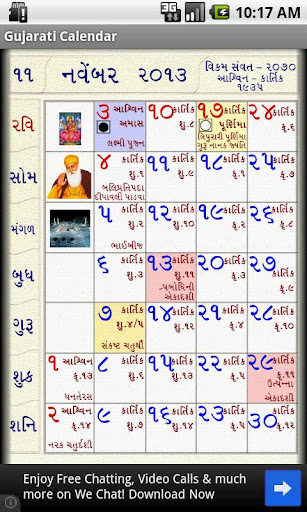 3G
10:17 AM
Gujarati Calendar
૧૧ નવેંબર ૨૦૧૩
વિક્રમ સંવત - ૨૦૭૦
આશ્વિન - કાર્તિક
૧૯૩૫
રવિ
૩ આશ્વિન
અમાસ
લક્ષ્મી પૂજન
૧૦ કાર્તિક
શુ.૮
૧૭ કાર્તિક
પૂર્ણિમા
ત્રિપુરારી પૂર્ણિમા
ગુરૂ નાનક જયંતિ
૨૪ કાર્તિક
કૃ.૬
સોમ
૪ કાર્તિક
શુ.૧
બલિપ્રતિપદા
દીપાવલી પાડવા
૧૧ કાર્તિક
શુ.૯
૧૮ કાર્તિક
કૃ.૧
૨૫ કાર્તિક
કૃ.૭
મંગળ
૫ કાર્તિક
શુ.૨
ભાઈબીજ
૧૨ કાર્તિક
શુ.૧૦
૧૯ કાર્તિક
કૃ.૨
૨૬ કાર્તિક
કૃ.૮
બુધ
૬ કાર્તિક
શુ.૩
૧૩ કાર્તિક
શુ.૧૧
પ્રબોધિની
એકાદશી
૨૦ કાર્તિક
કૃ.૩
૨૭ કાર્તિક
કૃ.૯
ગુરૂ
૭ કાર્તિક
શુ.૪/૫
સંકષ્ટ ચતુર્થી
૧૪ કાર્તિક
૨૧ કાર્તિક
૨૮ કાર્તિક
કૃ.૧૦
શુક્ર
૧ આશ્વિન
કૃ.૧૩
ધનતેરસ
૮ કાર્તિક
શુ.૬
૧૫ કાર્તિક
૨૨ કાર્તિક
૨૯ કાર્તિક
કૃ.૧૧
ઉત્પત્તિ
એકાદશી
શનિ
૨ આશ્વિન
કૃ.૧૪
નરક ચતુર્દશી
૯ કાર્તિક
શુ.૭
૧૬ કાર્તિક
૨૩ કાર્તિક
૩૦ કાર્તિક
કૃ.૧૨
Enjoy Free Chatting, Video Calls & much
more on We Chat! Download Now